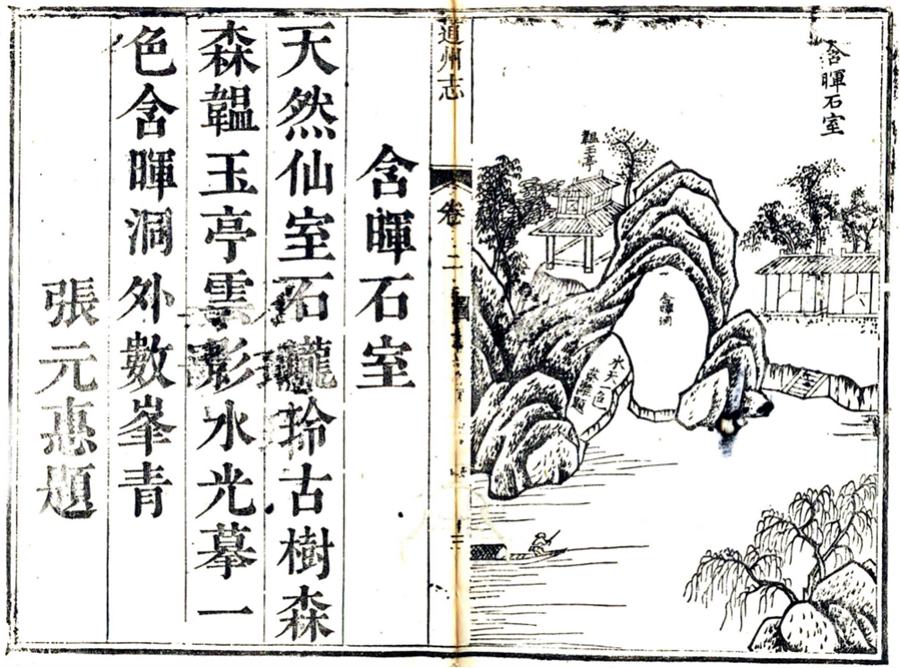 含暉石室
韞玉亭
含暉洞
水天一色
道州志
卷二
含暉石室
天然仙室石瓏玲古樹森
森韞玉亭雲影水光摹一
色含暉洞外數峯青
張元惠題